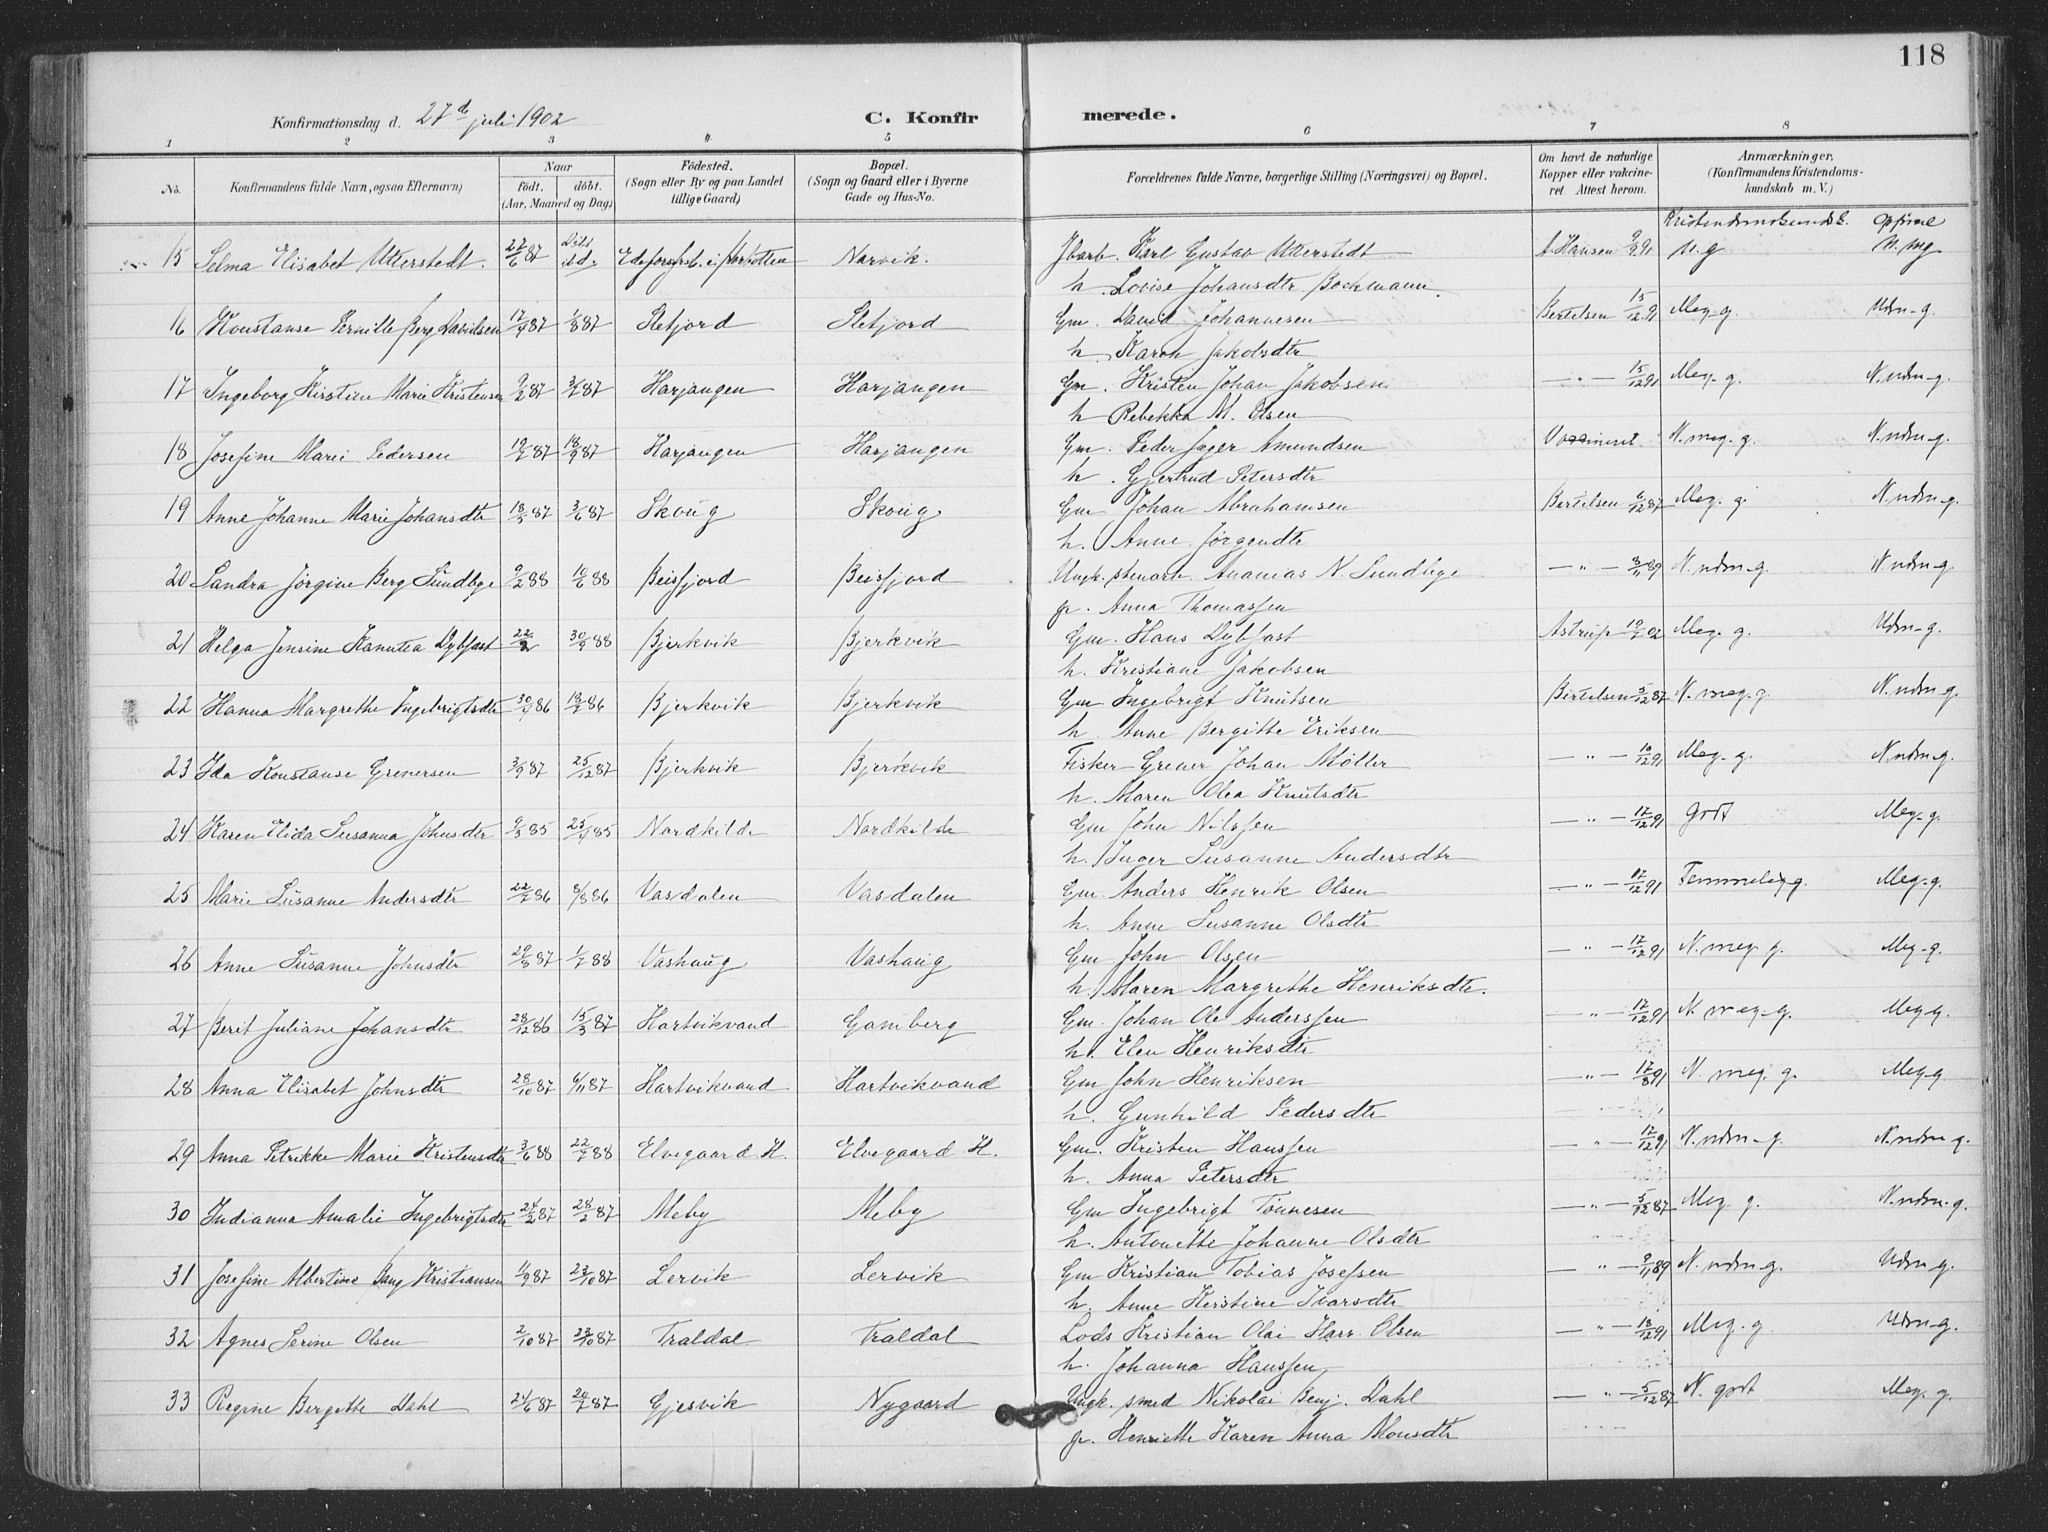 118
Konfirmationsdag d. 27de juli 1902 C. Konfirmerede.
1 2 3 4 5 6 7 8
No. Konfirmandens fulde Navn, ogsaa Efternavn) Naar født. døbt. (Aar, Maaned og Dag) Födested. (Sogn eller By og paa Landet tillige Gaard) Bopæl. (Sogn og Gaard eller i Byerne Gade og Hus-No. Forældrenes fulde Navne, borgerlige Stilling (Næringsvei) og Bopæl. Om havt de naturlige Kopper eller vakcineret. Attest herom. Anmærkninger, (Konfirmandens Kristendomskundskab m. V.)
Kristendomskundsk. Opførsel
15 Selma Elisabet Utterstedt. 27/6 87 Narvik. Jbarb. Karl Gustav Utterstedt A. Hansen 9/9 91 m. g
h. Lovise Johansdtr Bockmann.
16 Konstanse Pernille Berg Davidsen 17/4 87 1/8 87 Sletjord Sletjord Gm. David Johannesen Bertelsen 15/12 91 Meg. g. Udm-g.
h. Karen Jakobsdtr
17 Ingeborg Kirstine Marie Kristensen 9/2 87 87 Harjangen Harjangen Gm. Kristen Johan Jakobsen — " — 15/12 91 Meg. g. N. udm-g.
h Rebekka M. Olsen
18 Josefine Marie Pedersen 87 18/9 87 Harjangen Harjangen Gm. Peder Jager Amundsen Vaccineret N. meg. g. N. udm-g.
h. Gjertrud Petersdtr
19 Anne Johanne Marie Johansdtr 87 3/6 87 Skoug Skoug Gm. Johan Abrahamsen Bertelsen 6/12 87 Meg. g. N. udm-g.
h. Anne Jørgendtr
20 Sandra Jørgine Berg Sundbye 9/2 88 10/6 88 Beisfjord Beisfjord Ungk. stenarb. Ananias N. Sundbye — " — 89 N. udm-g. N. udm-g.
p. Anna Thomassen
21 Helga Jensine Kanutea Dybfast 30/9 88 Bjerkvik Bjerkvik Gm. Hans Dybfast Astrup 02 Meg. g. Udm-g.
h. Kristiane Jakobsen
22 Hanna Margrethe Ingebrigtsdtr 86 86 Bjerkvik Bjerkvik Gm. Ingebrigt Knutsen Bertelsen 5/12 87 N. meg. g. N. udm-g.
h. Anne Bergitte Eriksen
23 Ida Konstanse Grenersen 3/9 87 25/12 87 Bjerkvik Bjerkvik Fisker Grener Johan Møller — " — 10/12 91 Meg. g. N. udm-g.
h. Maren Olea Knutsdtr
24 Karen Elida Susanna Johnsdtr 85 85 Nordkilde Nordkilde Gm John Nilssen — " — 17/12 91 godt Meg. g.
h. Inger Susanne Andersdtr
25 Marie Susanne Andersdtr 86 8/8 86 Vasdalen Vasdalen Gm. Anders Henrik Olsen — " — 17/12 91 Temmelig g. Meg. g.
h. Anne Susanne Olsdtr
26 Anne Susanne Johnsdtr 29/8 87 88 Vashaug Vashaug Gm John Olsen — " — 17/12 91 N. meg. g. Meg. g.
h. Maren Margrethe Henriksdtr.
27 Berit Juliane Johansdtr 28/12 86 15/3 87 Hartvikvand Gamberg Gm. Johan Ole Anderssen — " — 17/12 91 N. meg-g. Meg. g.
h. Elen Henriksdtr
28 Anna Elisabet Johnsdtr 28/10 87 6/11 87 Hartvikvand Hartvikvand Gm John Henriksen — " — 17/8 91 N. meg. g. Meg-g
h. Gunhild Pedersdtr
29 Anna Petrikke Marie Kristensdtr 3/6 88 88 Elvegaard H. Elvegaard H. Gm. Kristen Hanssen — " — 17/12 91 N. udm-g. N. udm-g.
h. Anna Petersdtr
30 Indianna Amalie Ingebrigtsdtr 24/2 87 28/2 87 Meby Meby Gm Ingebrigt Tønnesen — " — 5/12 87 Meg. g. N. udm-g.
h. Antonette Johanne Olsdtr
31 Josefine Albertine Bang Kristiansen 11/9 87 23/10 87 Lervik Lervik Gm Kristian Tobias Josefsen — " — 9/11 89 N. udm-g. Udm-g.
h. Anne Kerstine Ivarsdtr
32 Agnes Serine Olsen 2/10 87 23/10 87 Traldal Traldal Lods Kristian Olai Harr Olsen — " — 18/12 91 Meg. g Udm-g.
h. Johanna Hanssen
33 Regine Bergitte Dahl 24/6 87 87 Gjesvik Nygaard Ungk. smed Nikolai Benj. Dahl — " — 5/12 87 N. godt Meg. g.
p. Henriette Karen Anna Monsdtr